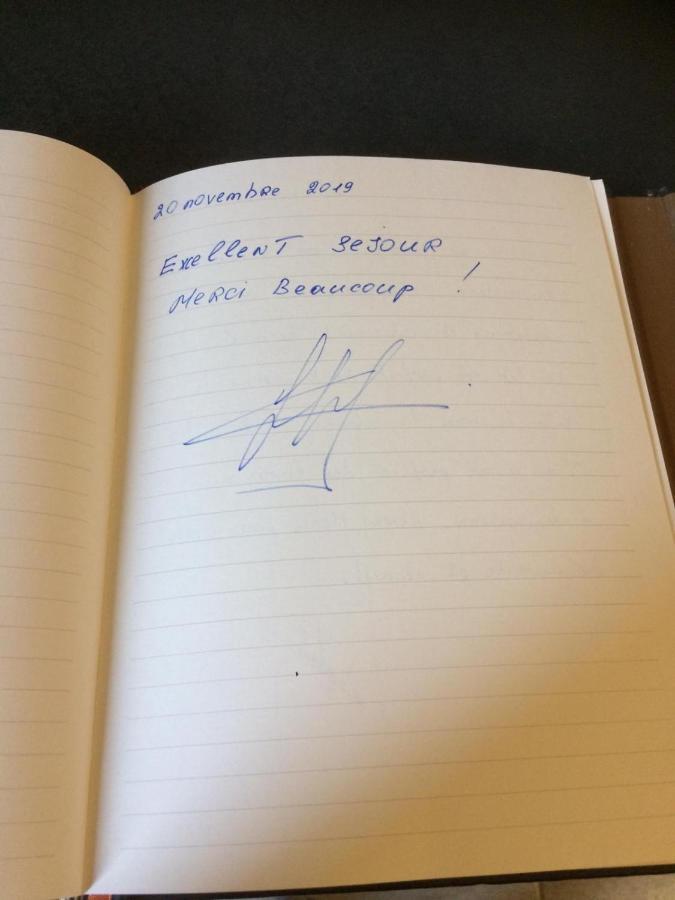 20 novembre 2019
Exellent sejour
Merci Beaucoup !